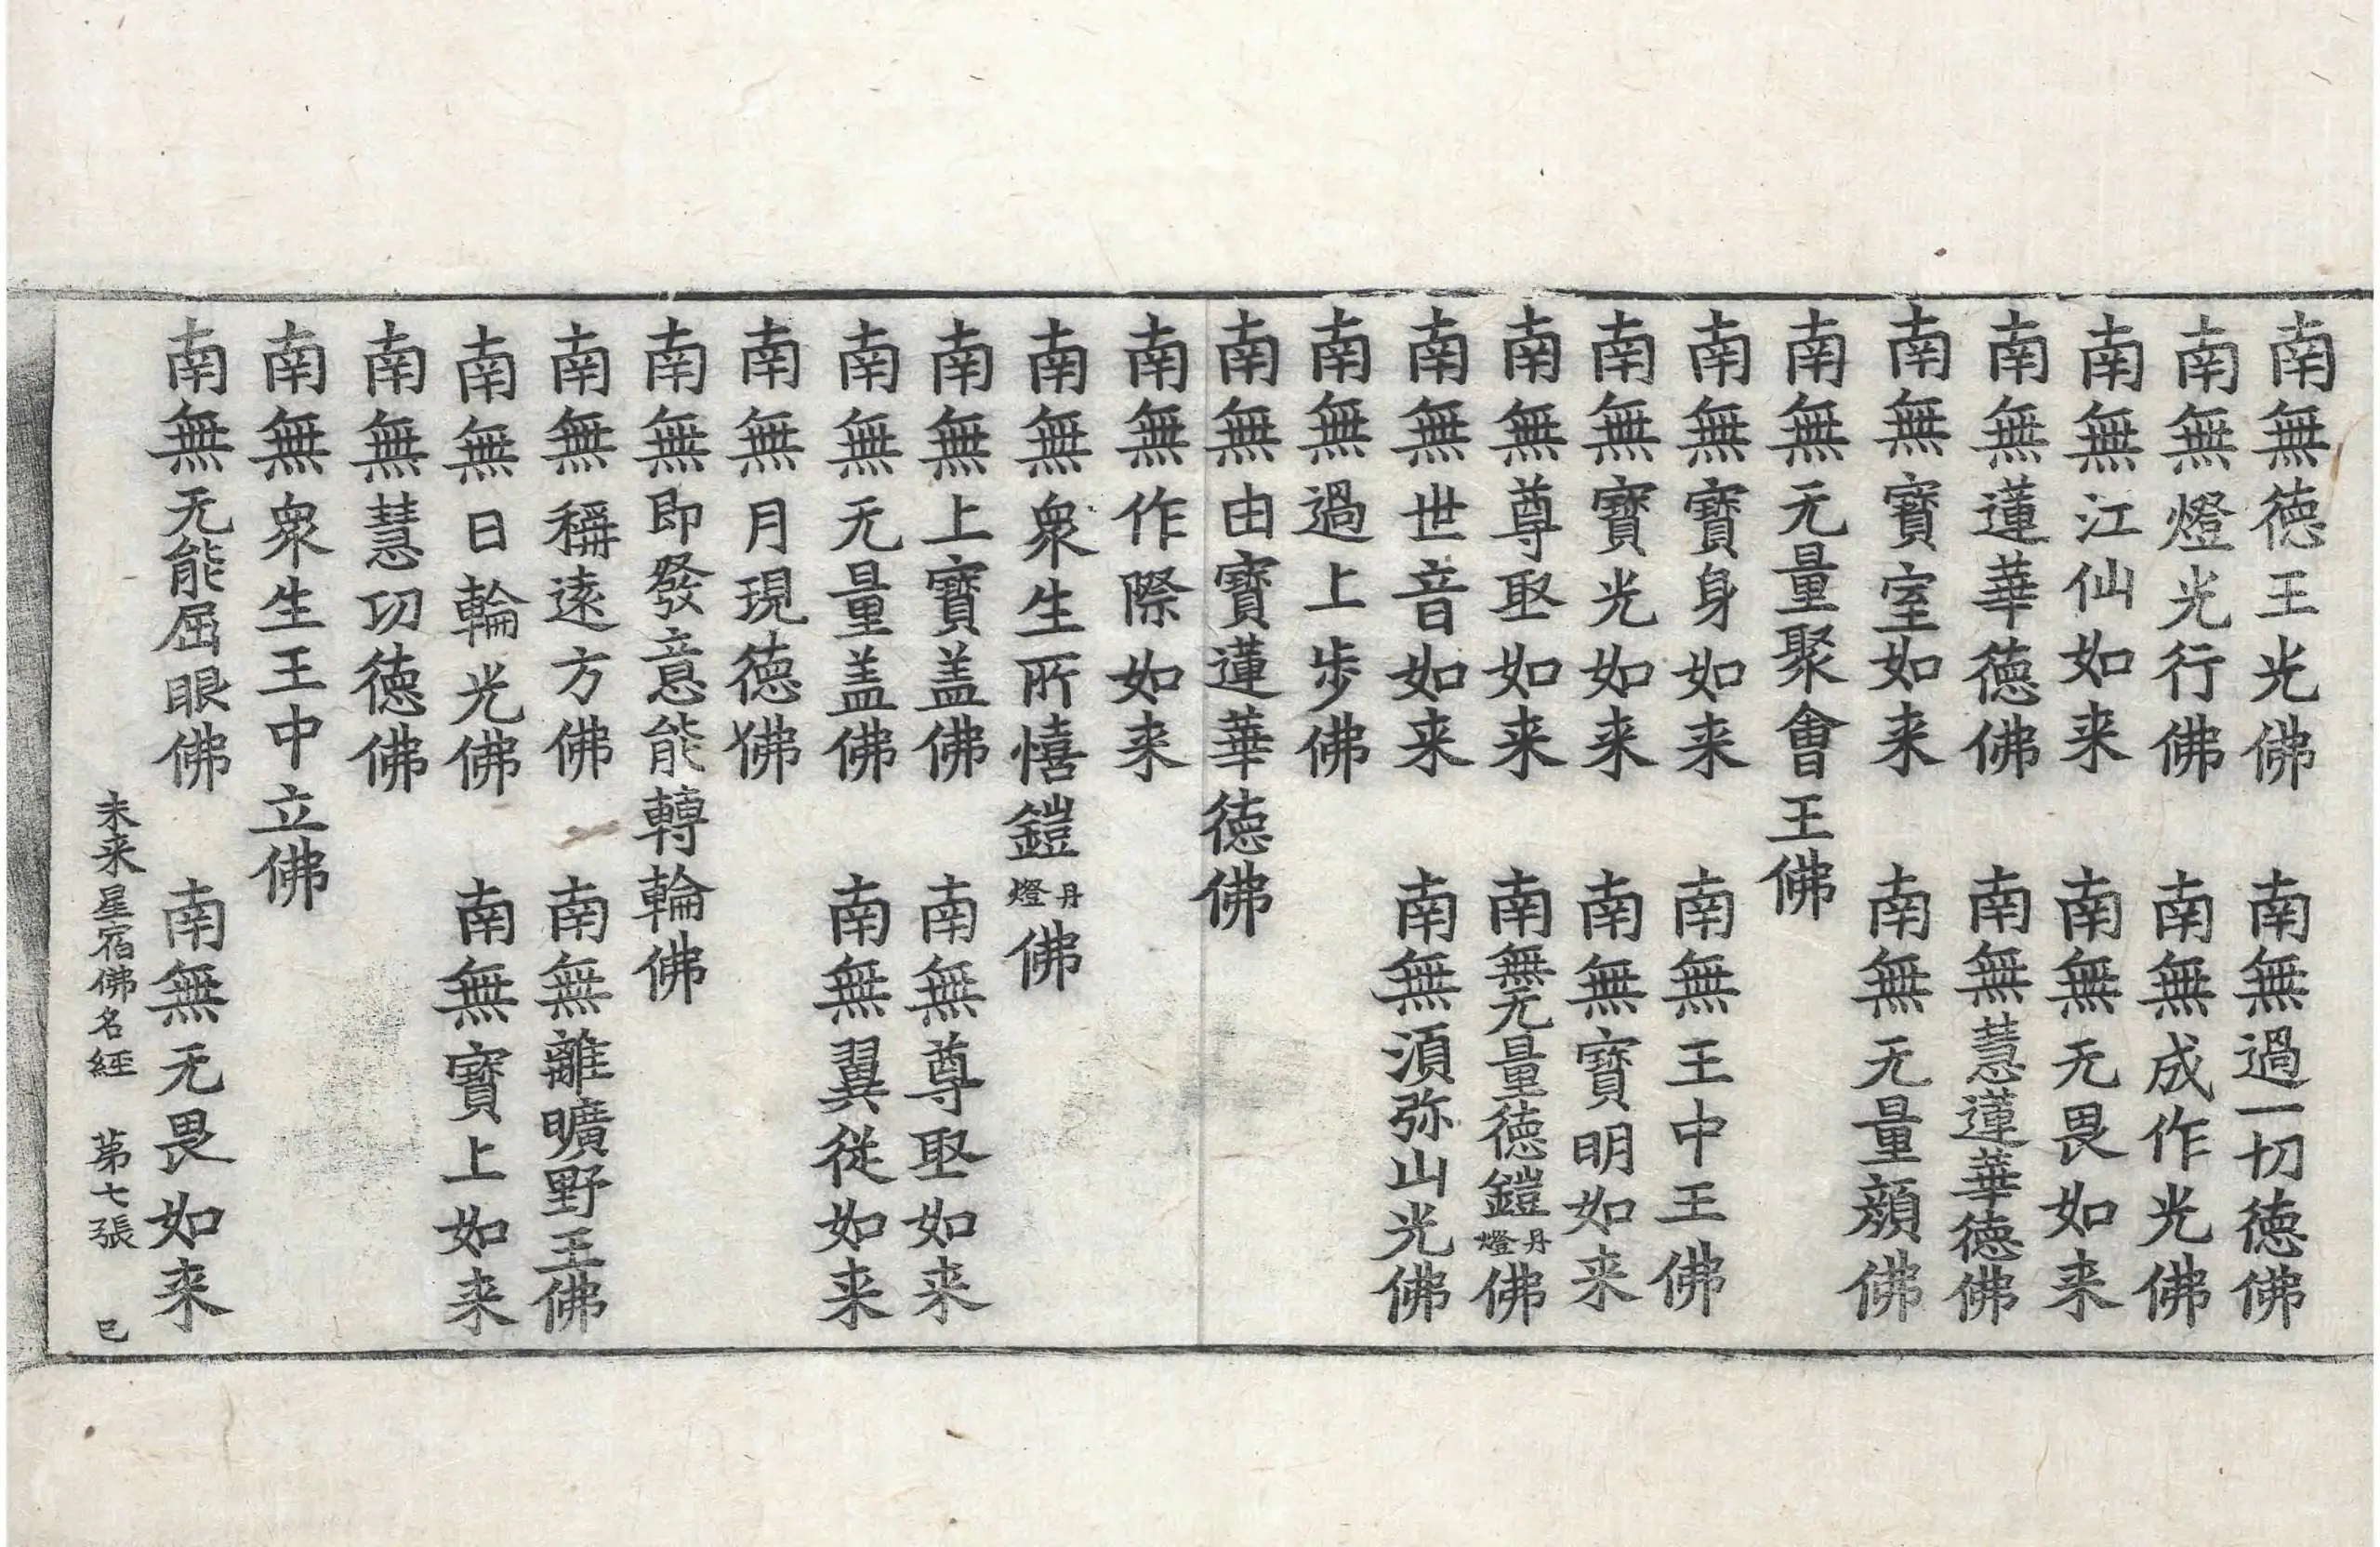 南無德王光佛　南無過一切德佛
南無燈光行佛　南無成作光佛
南無江仙如来　南無无畏如来
南無蓮華德佛　南無慧蓮華德佛
南無寶室如来　南無无量顔佛
南無无量聚會王佛
南無寶身如来　南無王中王佛
南無寶光如来　南無寶明如来
南無尊㝡如来　南無无量德鎧丹燈佛
南無世音如来　南無湏弥山光佛
南無過上步佛
南無由寶蓮華德佛
南無作際如来
南無衆生所憘鎧丹燈佛
南無上寶盖佛　南無尊㝡如来
南無无量盖佛　南無翼從如来
南無月現德佛
南無即發意能轉輪佛
南無稱遠方佛　南無離曠野王佛
南無日輪光佛　南無寶上如来
南無慧功德佛
南無衆生王中立佛
南無无能屈眼佛　南無无畏如来
未来星宿佛名經　第七張　巳